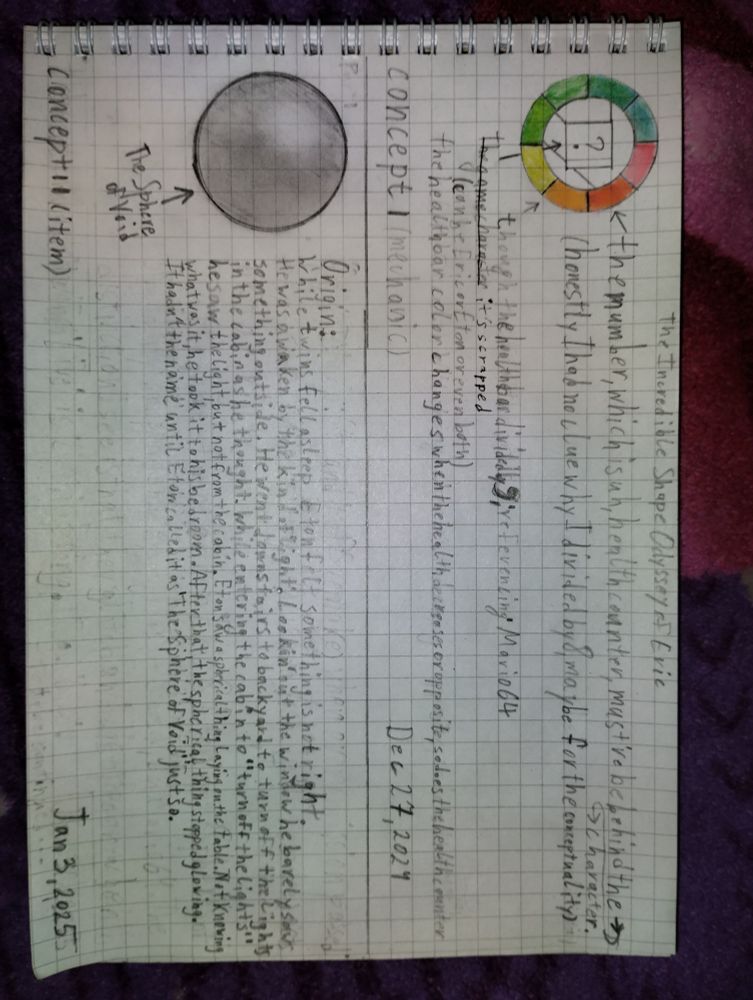 The Incredible Shape Odyssey of Eric
?
the number, which is uh, health counter, must've be behind the →
↳ character.
(honestly I had no clue why I divided by 8, maybe for the conceptuality)
though the health bar divided by 8, referencing Mario 64
the game character, it's scrapped
(can be Eric or Eton or even both)
the health bar color changes when the health decreases or opposite, so does the health counter
Concept 1 (mechanic)
Dec 27, 2024
The Sphere
of Void
Origin:
While twins fell asleep Eton felt something is not right.
He was awaken by the kind of light. Lookin' out the window he barely saw
something outside. He went downstairs to backyard to turn off the lights
in the cabin as he thought. While entering the cabin to "turn off the lights"
he saw the light, but not from the cabin. Eton saw a spherical thing laying on the table. Not knowing
what was it, he took it to his bedroom. After that, the spherical thing stopped glowing.
It hadn't the name until Eton called it as "The Sphere of Void" just so.
Concept 11 (item)
Jan 3, 2025